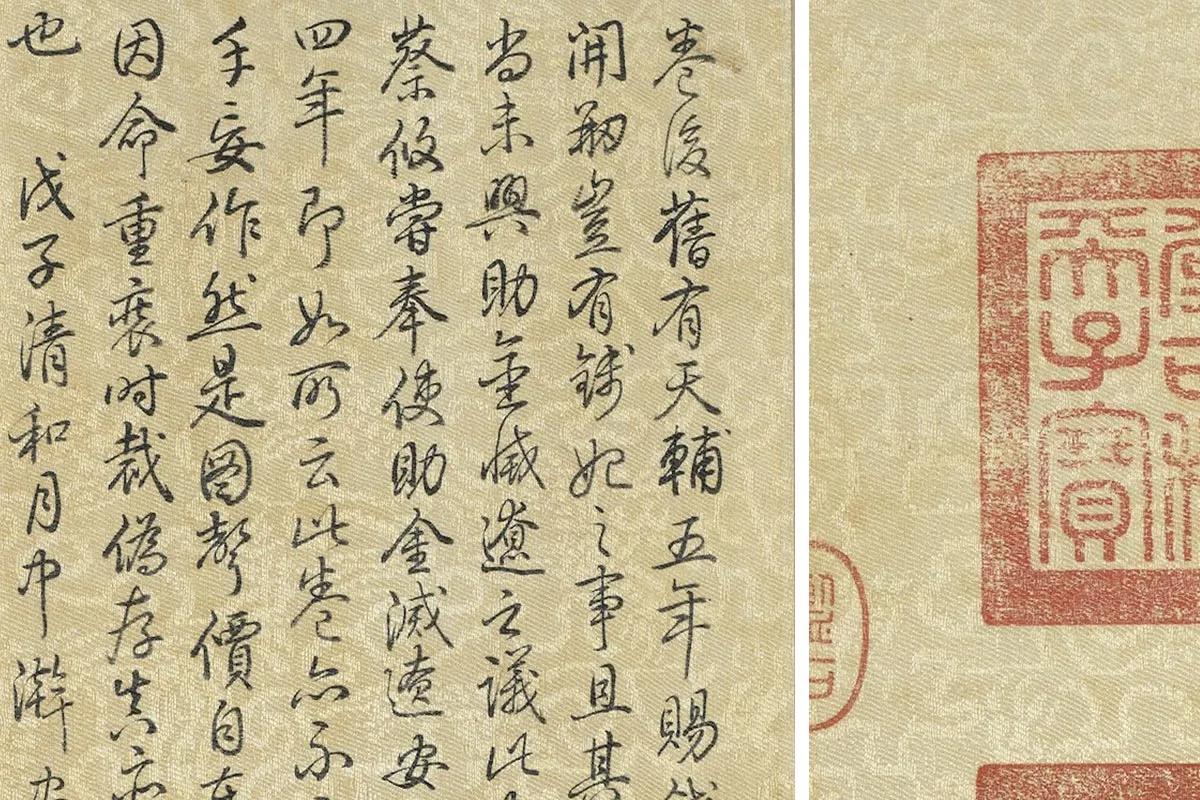 卷後舊有天輔五年賜
開剏豈有錢妃之事且其
尚未興助金滅遼之議此
蔡攸嘗奉使助金滅遼安
四年即如所云此卷亦不
手妄作然是圖聲價自在
因命重裝時裁偽存真亦
也 戊子清和月中澣
天子寶